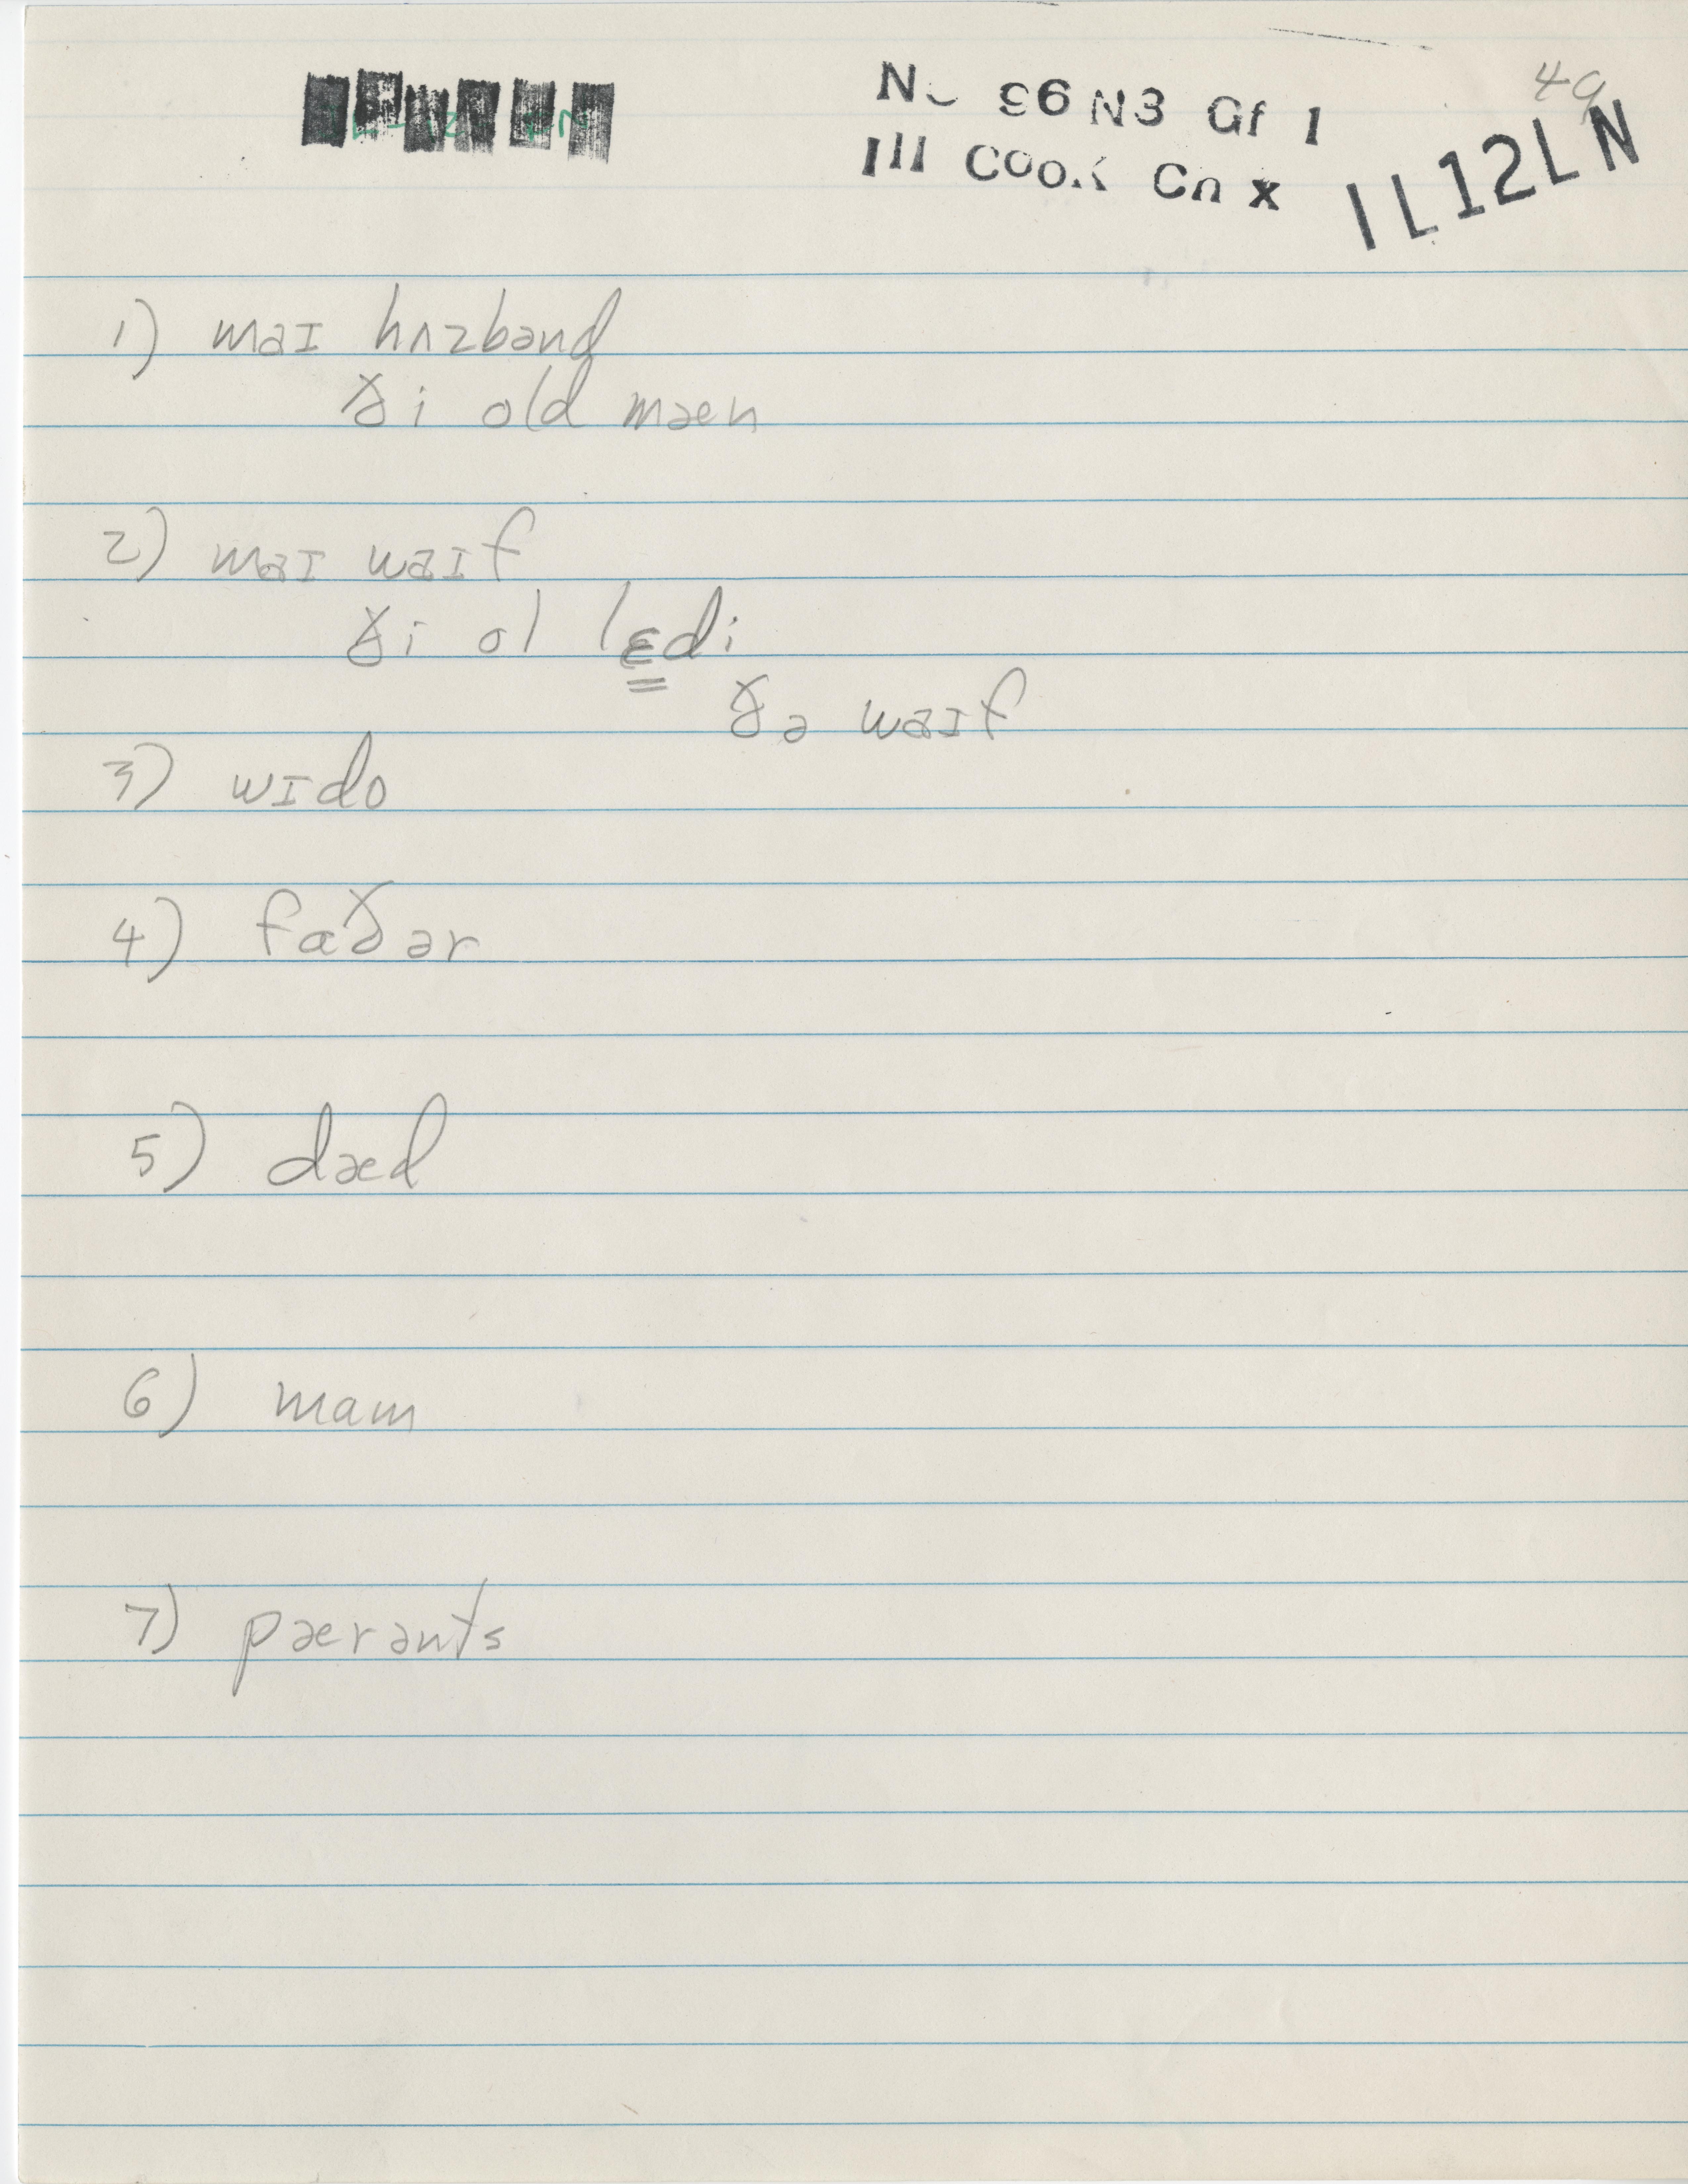 49
N 96 N3 Gf 1
Ill Cook Cn x
IL12LN
1) maɪ hʌzbənd
ði old mæn
2) maɪ waɪf
ði ol lɛdi
ðə waɪf
3) wɪdo
4) faðər
5) dæd
6) mam
7) pærənts